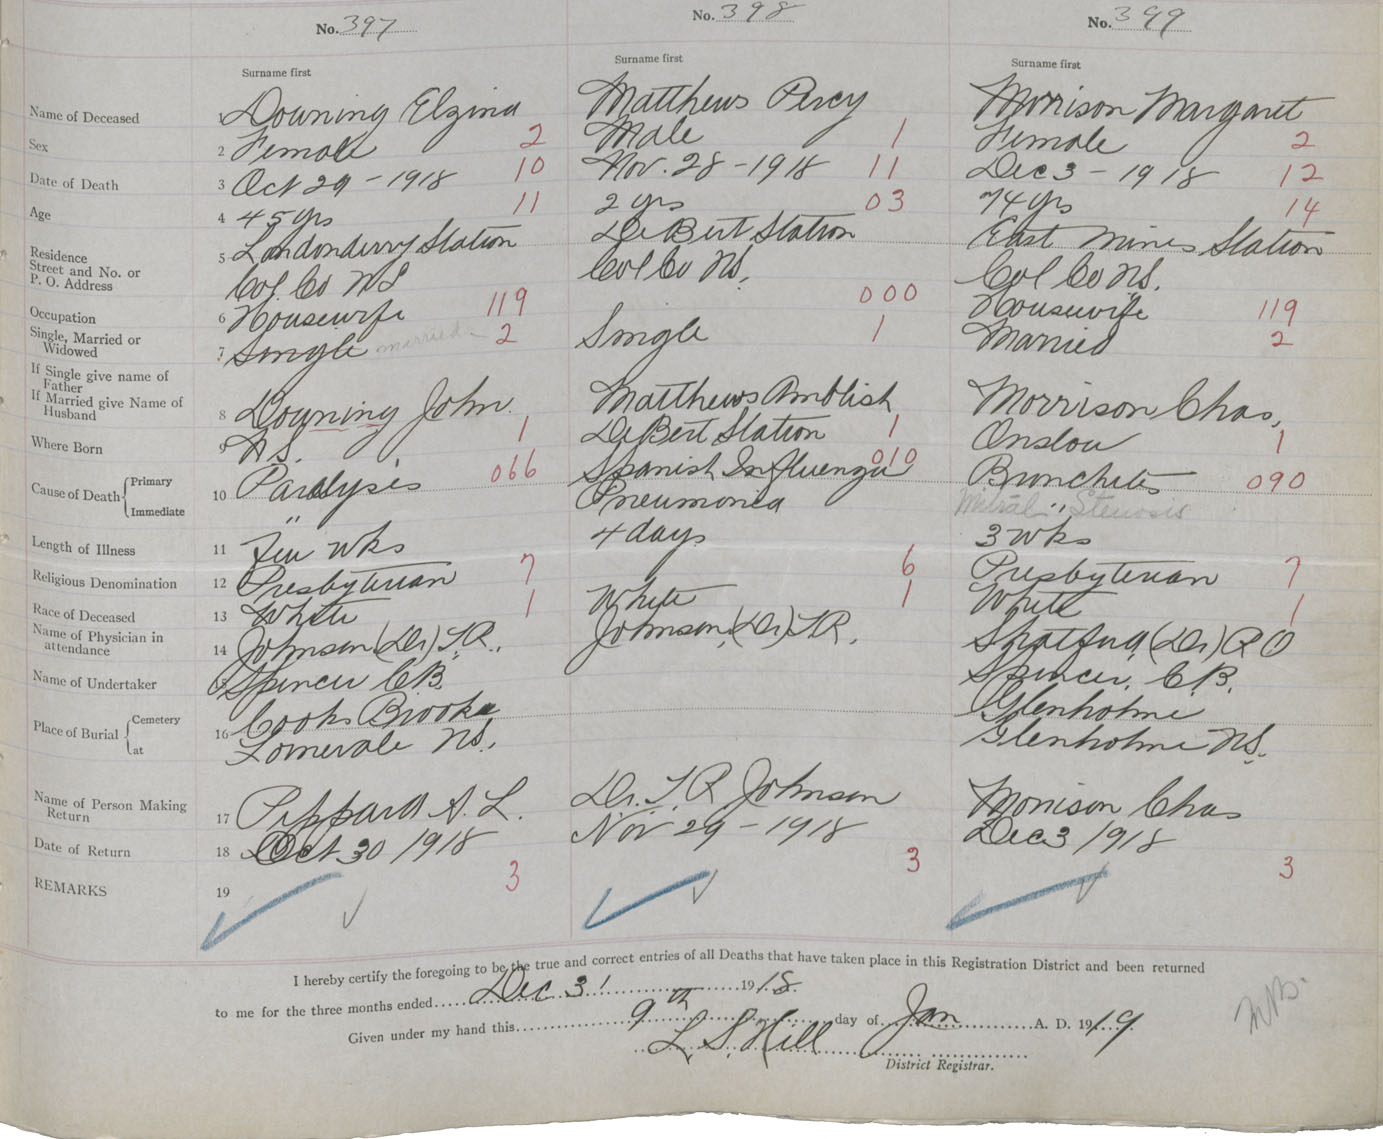 No. 397 No. 398 No. 399
Surname first Surname first Surname first
Name of Deceased 1 Downing Elzina Matthews Percy Morrison Margaret
Sex 2 Female 2 Male 1 Female 2
Date of Death 3 Oct 29 - 1918 10 Nov. 28 - 1918 11 Dec 3 - 1918 12
Age 4 45 yrs 11 2 yrs 03 74 yrs 14
Residence
Street and No. or
P. O. Address
5 Londonderry Station DeBert Station East Mines Station
Col. Co NS Col Co NS. Col Co NS.
Occupation 6 Housewife 119 000 Housewife 119
Single, Married or
Widowed
7 Single married 2 Single 1 Married 2
If Single give name of
Father
If Married give Name of
Husband
8 Downing John. Matthews Morrison Chas.
Where Born 9 N.S. 1 DeBert Station 1 Onslow 1
Cause of Death Primary 10 Paralysis 066 Spanish Influenza 010 Bronchitis 090
Immediate " Pneumonia Mitral " Stenosis
Length of Illness 11 Few wks 4 days 3 wks
Religious Denomination 12 Presbyterian 7 6 Presbyterian 7
Race of Deceased 13 White 1 White 1 White 1
Name of Physician in
attendance
14 Johnson (Dr) T.R. Johnson (Dr) T.R. (Dr) R O
Name of Undertaker 15 Spencer C.B. Spencer. C.B.
Place of Burial Cemetery 16 Cooks Brook Glenholme
at NS. Glenholme NS.
Name of Person Making
Return
17 Peppard A. L. Dr. T. R Johnson Morrison Chas
Date of Return 18 Oct 30 1918 Nov 29 - 1918 Dec 3 1918
REMARKS 19 3 3 3
I hereby certify the foregoing to be the true and correct entries of all Deaths that have taken place in this Registration District and been returned
to me for the three months ended Dec 31 1918.
Given under my hand this 9th day of Jan A. D. 1919
L. S. Hill
District Registrar.